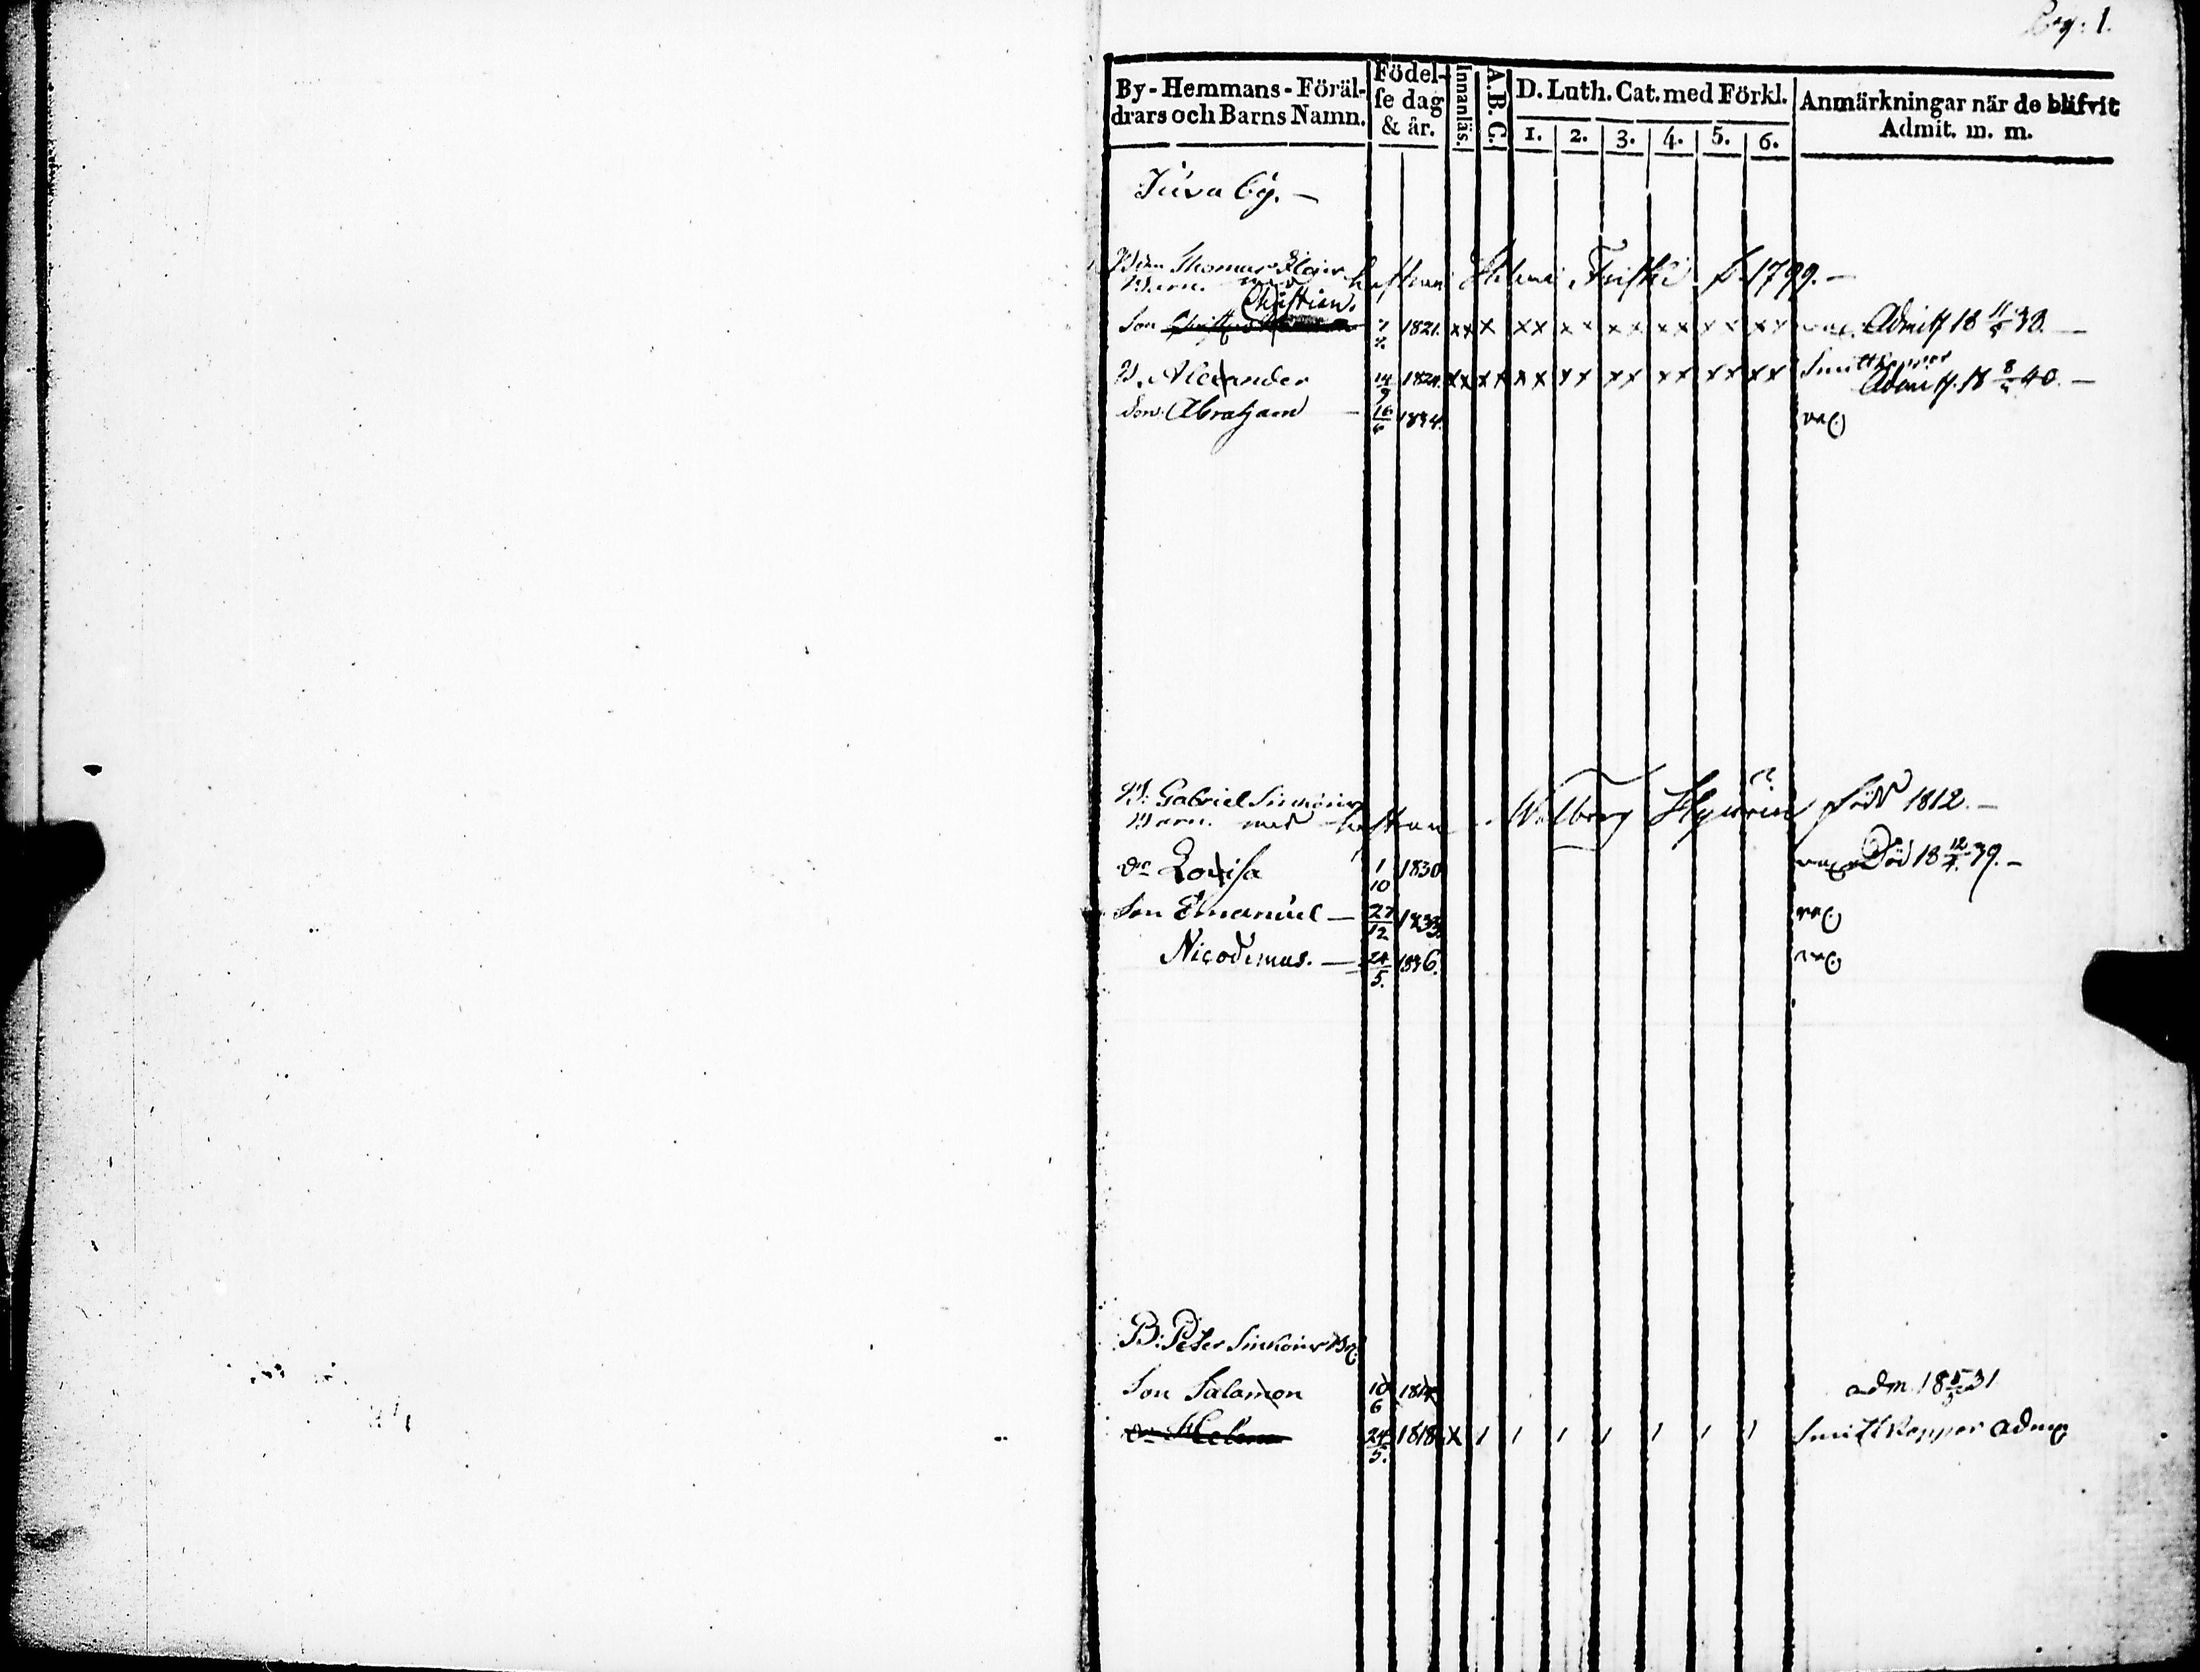 Pag: 1.
By-Hemmans-Föräl-
drars och Barns Namn.
Födel-
se dag
& år.
Innanläs.
A.B.C.
D. Luth. Cat. med Förkl.
1. 2. 3. 4. 5. 6.
Anmärkningar när de blifvit
Admit. m. m.
Juva by. —
Thomas
Barn. med hustrun Helena f. 1799. —
Christian.
Son 1821. xx x xx xx xx xx xx xx Admitt 18 38. —
Alexander 14/9 1824. xx xx xx xx xx xx xx xx Smittkoppor Admitt. 18 40. —
Son Abraham — 16/6 1834. vac.
B: Gabriel
Barn. med hustrun Walborg född 1812. —
dr Lovisa 1/10 1830 vac. Död 18 12/4 39. —
Son Emanuel — 27/12 1833. vac.
Nicodemus. — 24/5. 1836. vac.
B: Peter
Son Salamon 10/6 1814 adm. 18 31
dr Helena 24/5. 1818 x 1 1 1 1 1 1 1 Smittkoppor adm.